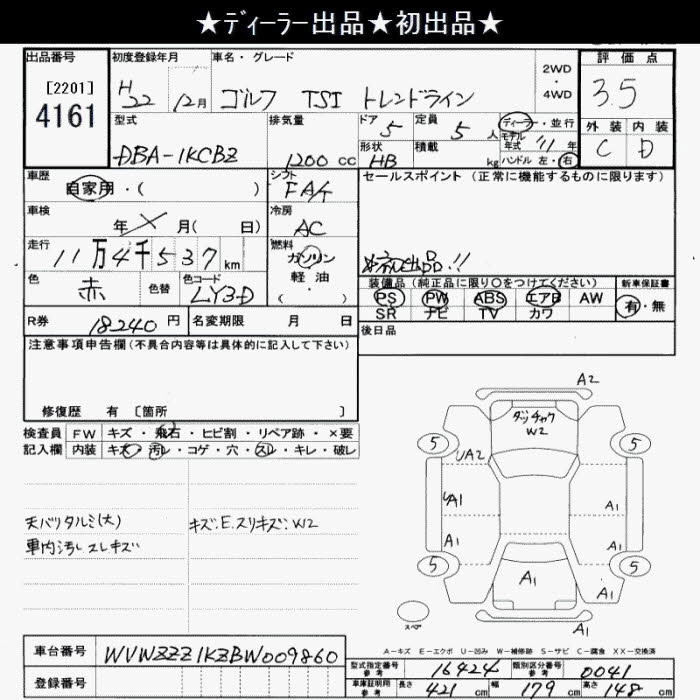 ★ディーラー出品★初出品★
出品番号 初度登録年月 車名・グレード 2WD・4WD 評価点
[2201]
4161
H22 12月 ゴルフ TSI トレンドライン 3.5
型式 排気量 ドア 定員 ディーラー・並行 外装 内装
DBA-1KCBZ 1200 CC 5 5人 モデル年式 '11年 C D
形状 HB 積載 kg ハンドル 左・右
車歴 シフト セールスポイント (正常に機能するものに限ります)
自家用・( ) FAT
車検 冷房
年 月( 日) AC
走行 燃料
11万4千537km ガソリン
軽油
・( )
色 色替 色コード
赤 LY3D
初出品!!
装備品 (純正品に限り○をつけてください) 新車保証書
PS PW ABS エアB AW 有・無
SR ナビ TV カワ
R券 18240円 名変期限 月 日 後日品
注意事項申告欄 (不具合内容等は具体的に記入して下さい)
修復歴 有 [箇所 ]
検査員 FW キズ・飛石・ヒビ割・リペア跡・×要
記入欄 内装 キズ・汚レ・コゲ・穴・スレ・キレ・破レ
天バリタルミ(大) キズ.E.スリキズ.W2
車内汚レスレキズ
A2
W2
5 5
UA2
UA1 A1
A1 A1
5 5
A1 A1
A1
スペア
A-キズ E-エクボ U-凹み W-補修跡 S-サビ C-腐食 XX-交換済
車台番号 WVWZZZ1KZBW009860
型式指定番号 参考 16424 類別区分番号 参考 0041
登録番号 車庫証明用 参考 長さ 421cm 幅 179cm 高さ 148cm